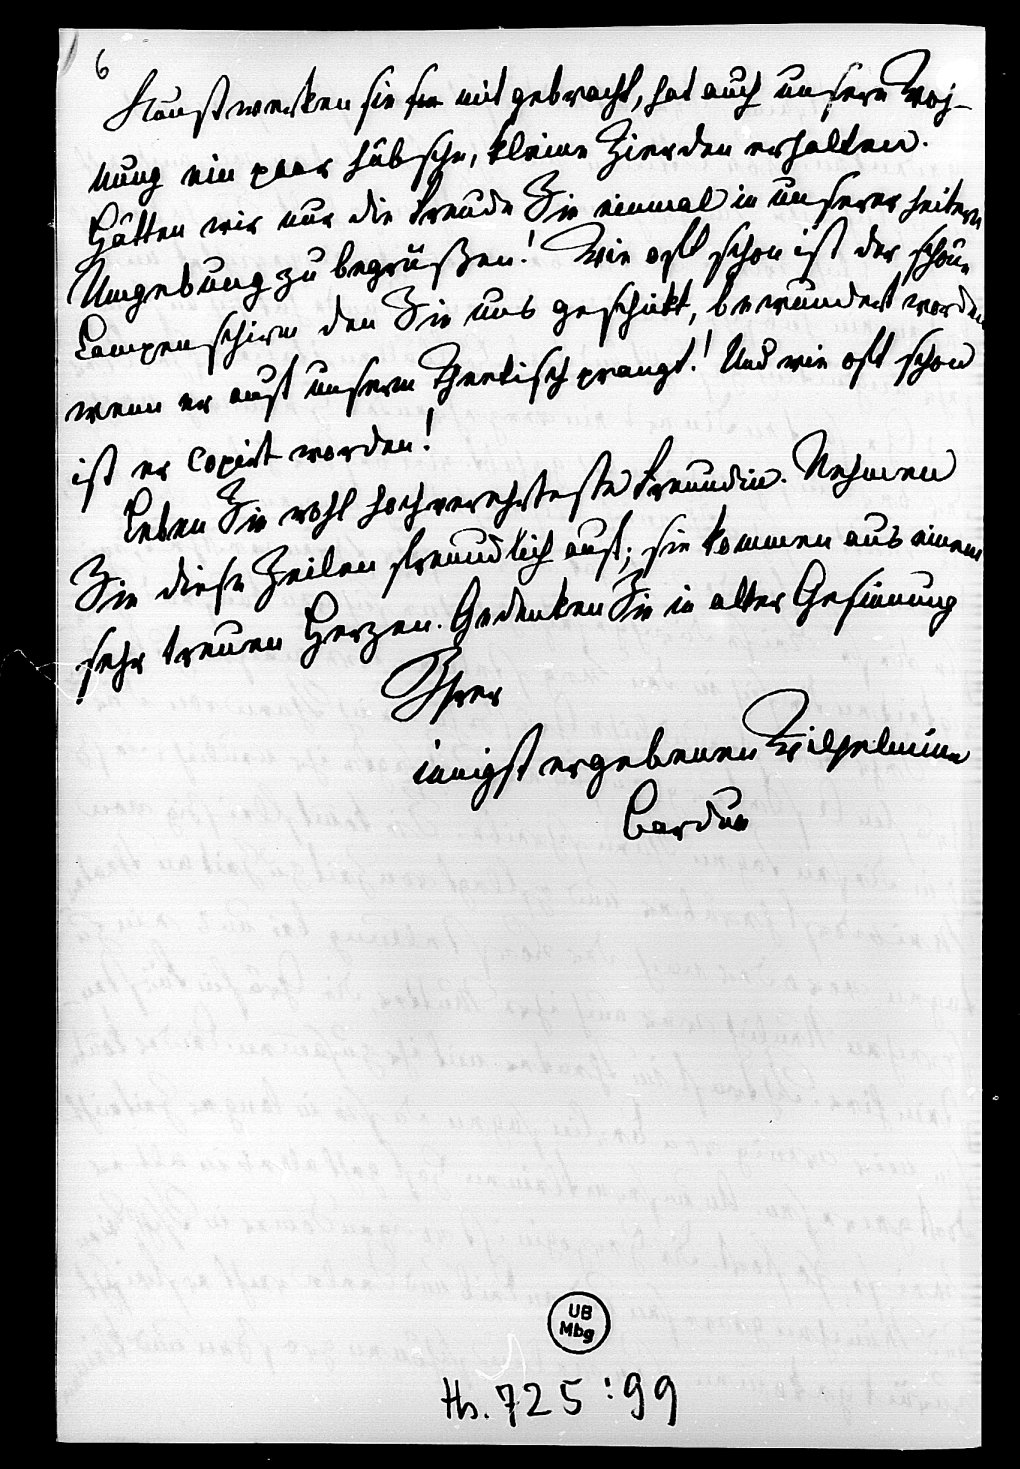 6
Kunstwerken sie mit gebracht, hat auch unsere Woh-
nung ein paar hübsche, kleine Zierden erhalten.
Hätten wir nur die Freude Sie einmal in unserer heitern
Umgebung zu begrüßen! Wie oft schon ist der schöne
Lampenschirm den Sie uns geschickt, bewundert worden
wenn er auf unserm Theetisch prangt! Und wie oft schon
ist er copirt worden!
Leben Sie wohl hochverehrteste Freundin. Nehmen
Sie diese Zeilen freundlich auf; sie kommen aus einem
sehr treuen Herzen. Gedenken Sie in alter Gesinnung
Ihrer
innigst ergebenen Wilhelmine
Bardua
UB
Mbg
Hs. 725:99